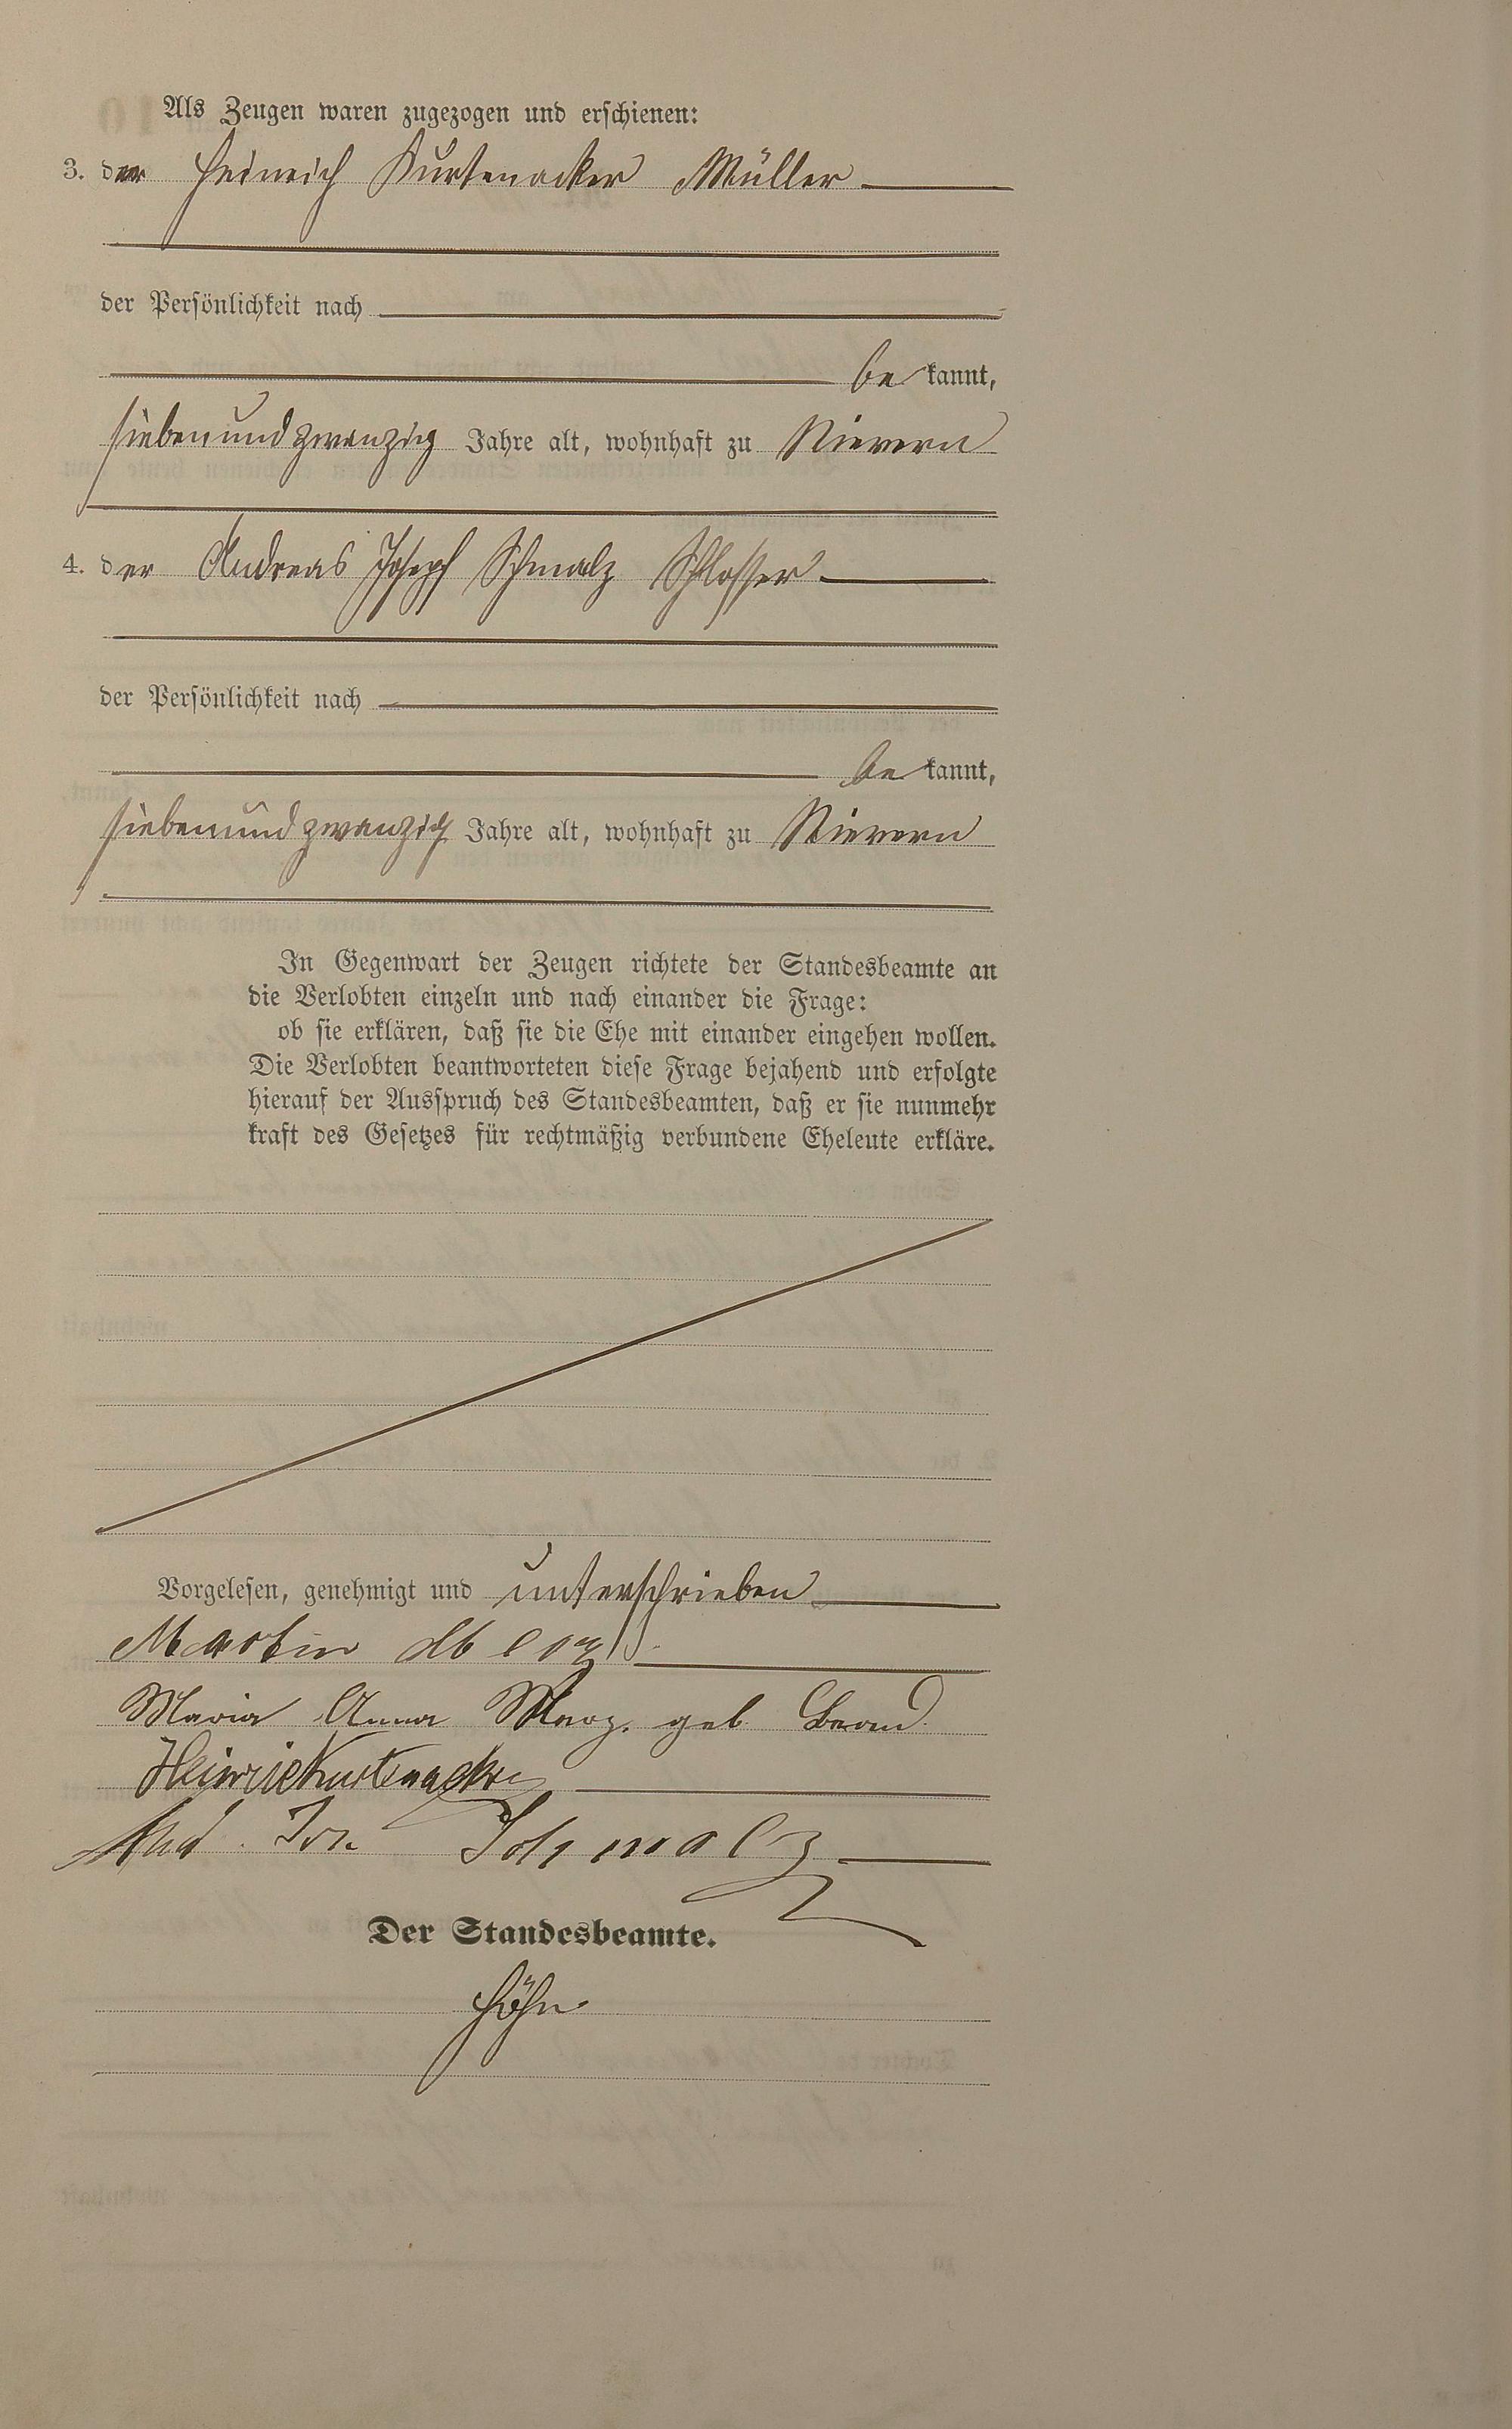 Als Zeugen waren zugezogen und erschienen:
3. der Heinrich Kurtenacker Müller
der Persönlichkeit nach
be kannt,
siebenundzwanzig Jahre alt, wohnhaft zu Nievern
4. der Andreas Joseph Schmalz Schlosser
der Persönlichkeit nach
be kannt,
siebenundzwanzig Jahre alt, wohnhaft zu Nievern
In Gegenwart der Zeugen richtete der Standesbeamte an
die Verlobten einzeln und nach einander die Frage:
ob sie erklären, daß sie die Ehe mit einander eingehen wollen.
Die Verlobten beantworteten diese Frage bejahend und erfolgte
hierauf der Ausspruch des Standesbeamten, daß er sie nunmehr
kraft des Gesetzes für rechtmäßig verbundene Eheleute erkläre.
Vorgelesen, genehmigt und unterschrieben
Martin
Maria Anna geb.
Heinrich Kurtenacker
And. Jos. Schmalz
Der Standesbeamte.
Höhn